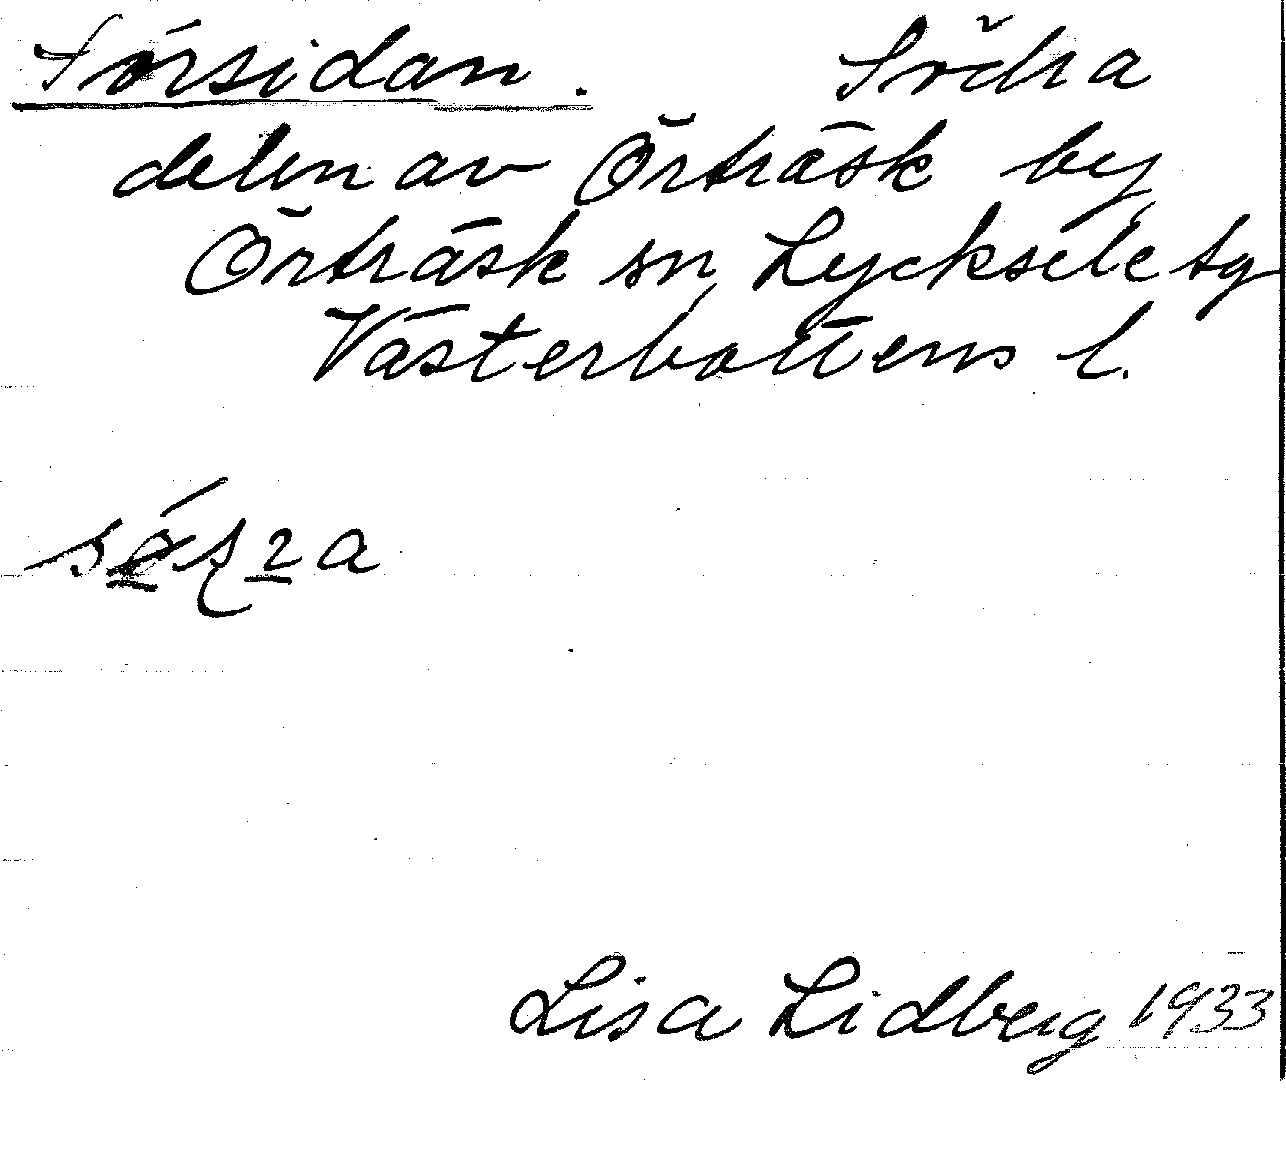 Sörsidan. Södra
delen av Örträsk by
Örträsk sn, Lycksele tg
Västerbottens l.
Lisa Lidberg 1933